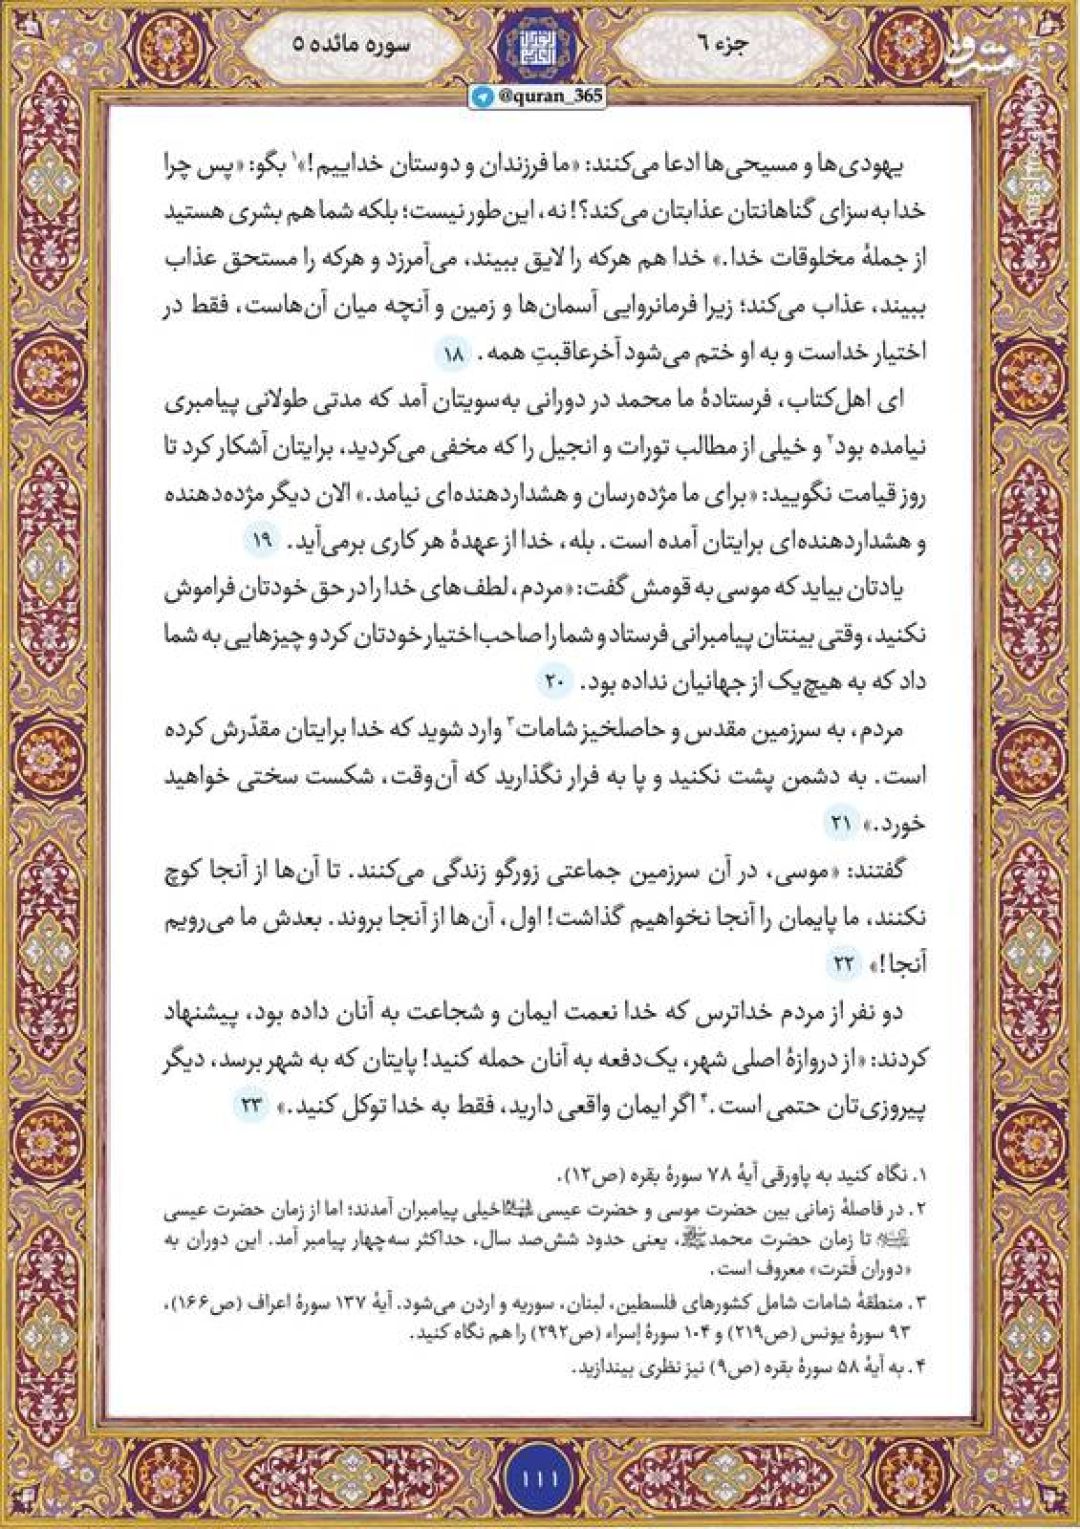 جزء ۶
سوره مائده ۵
مشرق
mashreghnews.ir
@quran_365
یهودی‌ها و مسیحی‌ها ادعا می‌کنند: «ما فرزندان و دوستان خداییم!»۱ بگو: «پس چرا
خدا به‌سزای گناهانتان عذابتان می‌کند؟! نه، این‌طور نیست؛ بلکه شما هم بشری هستید
از جملهٔ مخلوقات خدا.» خدا هم هرکه را لایق ببیند، می‌آمرزد و هرکه را مستحق عذاب
ببیند، عذاب می‌کند؛ زیرا فرمانروایی آسمان‌ها و زمین و آنچه میان آن‌هاست، فقط در
اختیار خداست و به او ختم می‌شود آخرعاقبتِ همه. ۱۸
ای اهل‌کتاب، فرستادهٔ ما محمد در دورانی به‌سویتان آمد که مدتی طولانی پیامبری
نیامده بود۲ و خیلی از مطالب تورات و انجیل را که مخفی می‌کردید، برایتان آشکار کرد تا
روز قیامت نگویید: «برای ما مژده‌رسان و هشداردهنده‌ای نیامد.» الان دیگر مژده‌دهنده
و هشداردهنده‌ای برایتان آمده است. بله، خدا از عهدهٔ هر کاری برمی‌آید. ۱۹
یادتان بیاید که موسی به قومش گفت: «مردم، لطف‌های خدا را در حق خودتان فراموش
نکنید، وقتی بینتان پیامبرانی فرستاد و شما را صاحب‌اختیار خودتان کرد و چیزهایی به شما
داد که به هیچ‌یک از جهانیان نداده بود. ۲۰
مردم، به سرزمین مقدس و حاصلخیز شامات۳ وارد شوید که خدا برایتان مقدّرش کرده
است. به دشمن پشت نکنید و پا به فرار نگذارید که آن‌وقت، شکست سختی خواهید
خورد.» ۲۱
گفتند: «موسی، در آن سرزمین جماعتی زورگو زندگی می‌کنند. تا آن‌ها از آنجا کوچ
نکنند، ما پایمان را آنجا نخواهیم گذاشت! اول، آن‌ها از آنجا بروند. بعدش ما می‌رویم
آنجا!» ۲۲
دو نفر از مردم خداترس که خدا نعمت ایمان و شجاعت به آنان داده بود، پیشنهاد
کردند: «از دروازهٔ اصلی شهر، یک‌دفعه به آنان حمله کنید! پایتان که به شهر برسد، دیگر
پیروزی‌تان حتمی است.۴ اگر ایمان واقعی دارید، فقط به خدا توکل کنید.» ۲۳
۱. نگاه کنید به پاورقی آیهٔ ۷۸ سورهٔ بقره (ص۱۲).
۲. در فاصلهٔ زمانی بین حضرت موسی و حضرت عیسی خیلی پیامبران آمدند؛ اما از زمان حضرت عیسی
تا زمان حضرت محمد، یعنی حدود شش‌صد سال، حداکثر سه‌چهار پیامبر آمد. این دوران به
«دوران فَترت» معروف است.
۳. منطقهٔ شامات شامل کشورهای فلسطین، لبنان، سوریه و اردن می‌شود. آیهٔ ۱۳۷ سورهٔ اعراف (ص۱۶۶)،
۹۳ سورهٔ یونس (ص۲۱۹) و ۱۰۴ سورهٔ إسراء (ص۲۹۲) را هم نگاه کنید.
۴. به آیهٔ ۵۸ سورهٔ بقره (ص۹) نیز نظری بیندازید.
۱۱۱